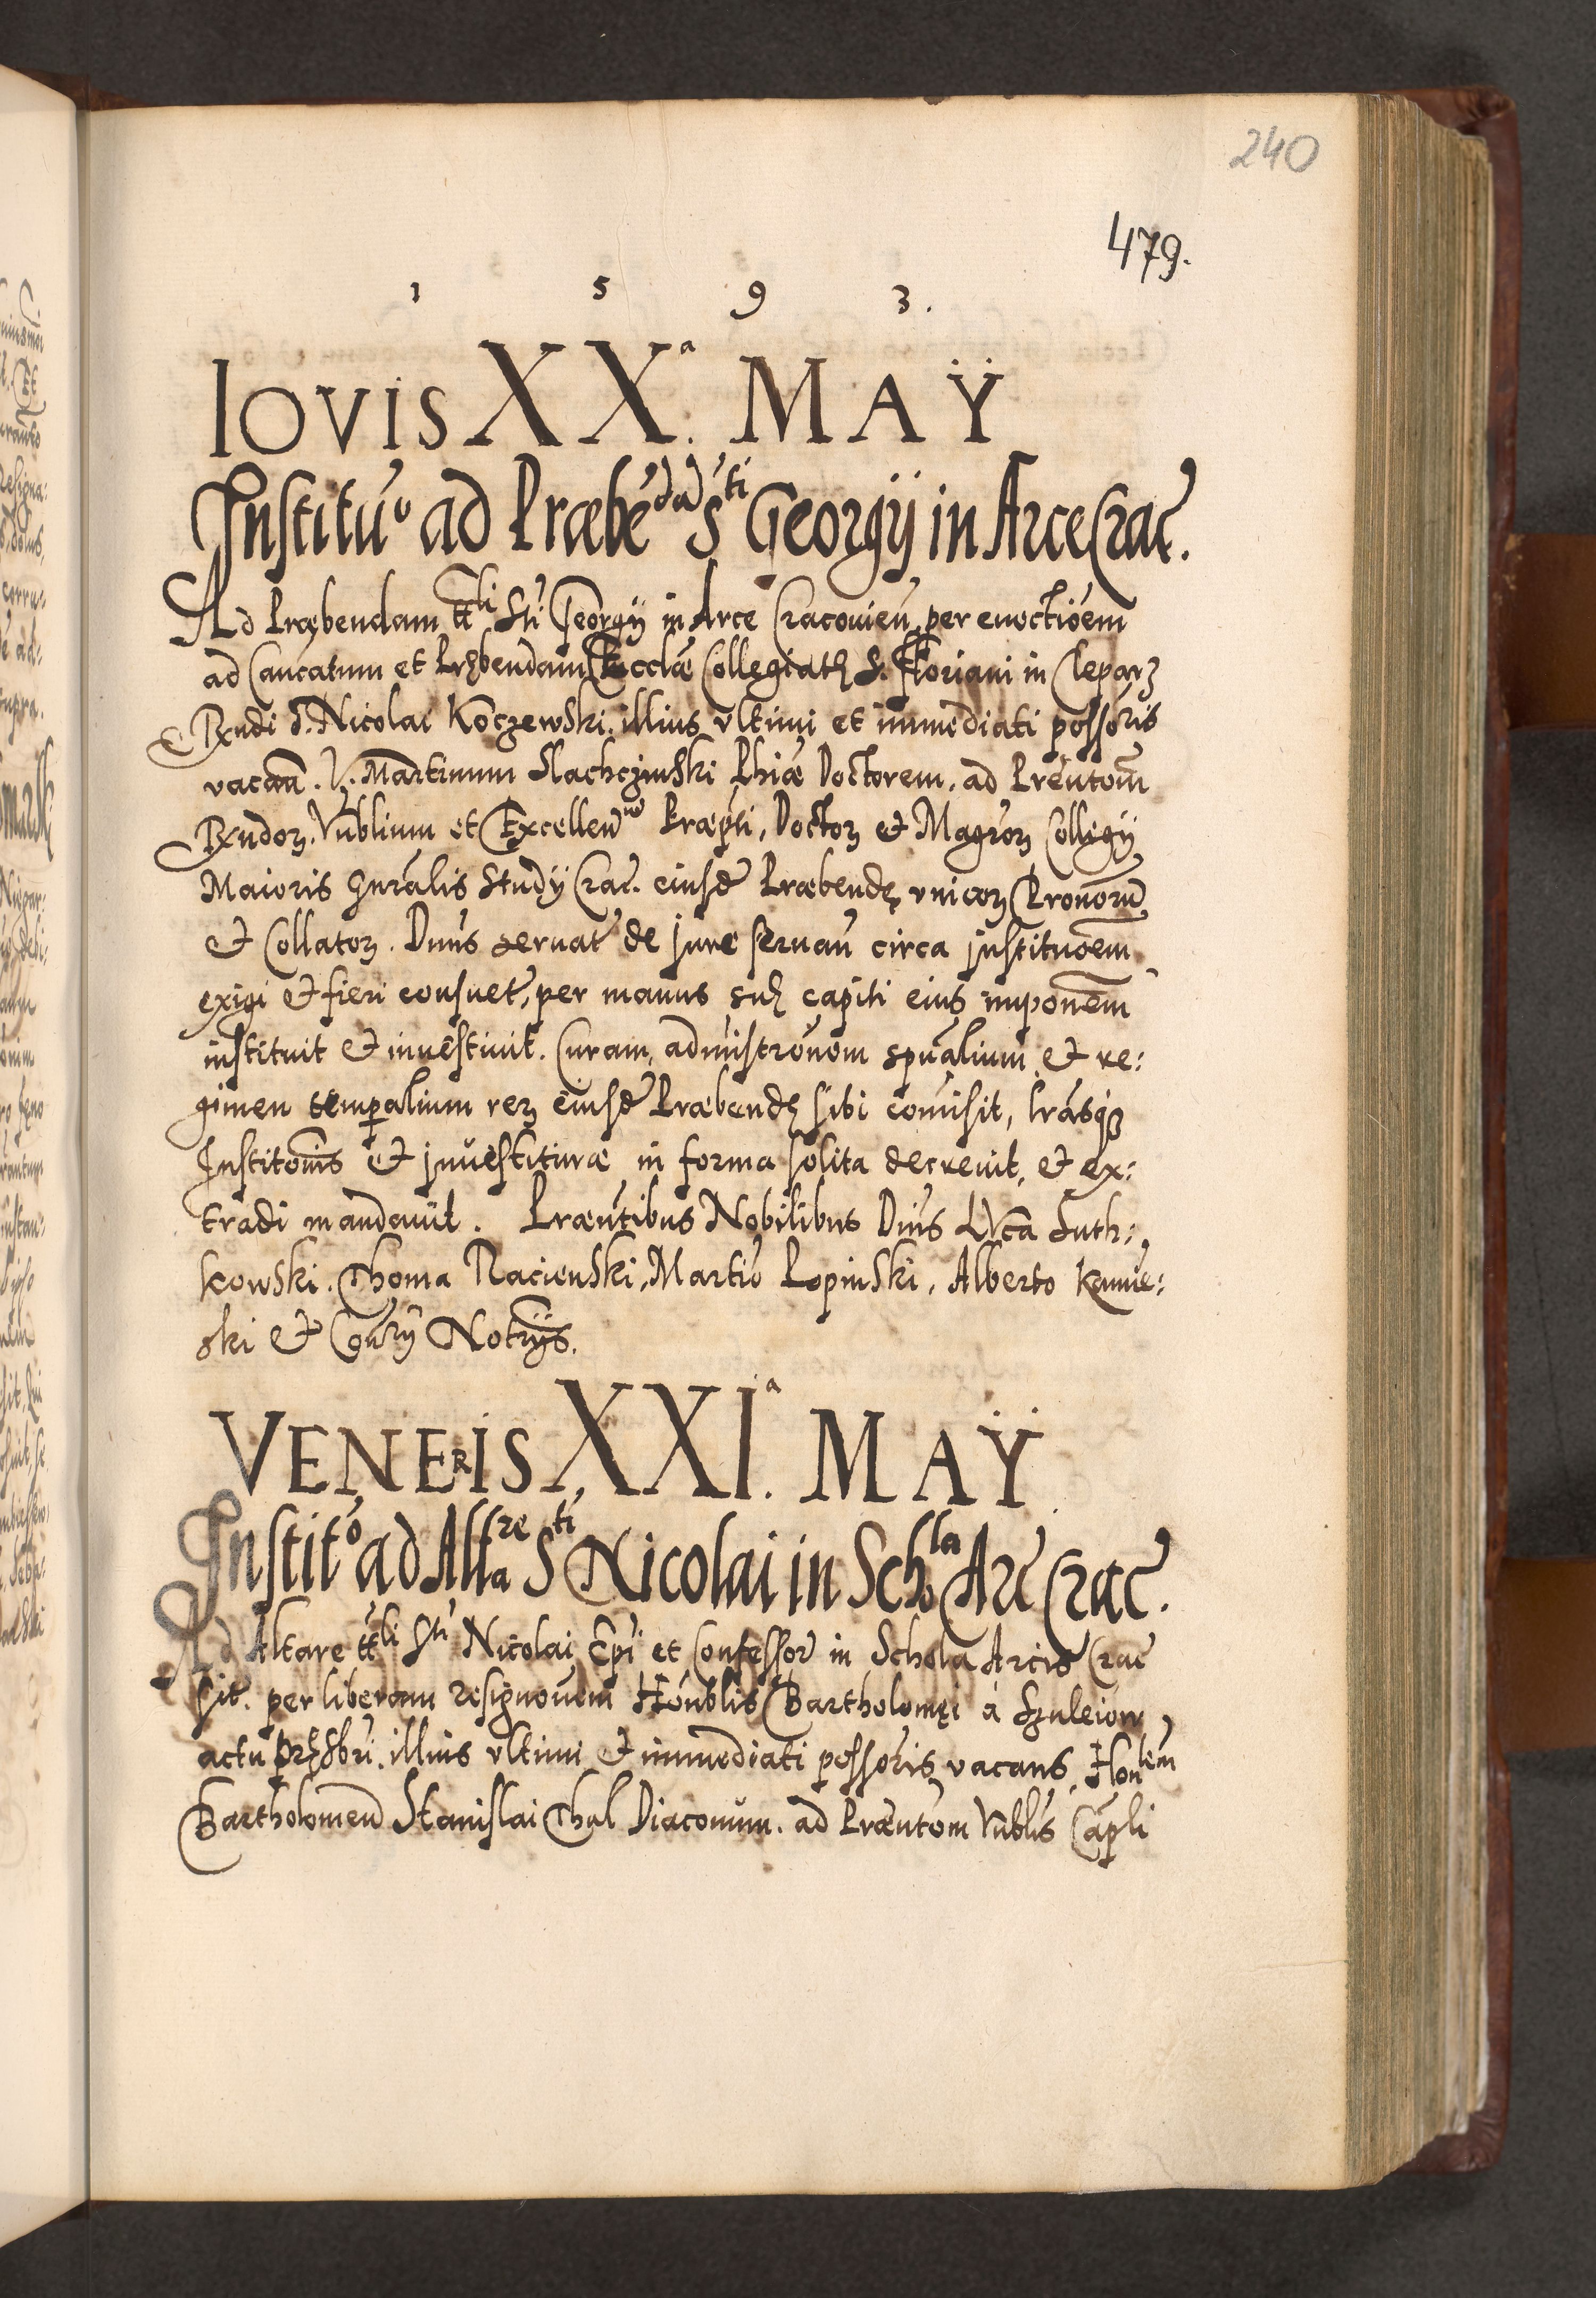 240
479.
1 5 9 3.
IOVIS XXª. MAŸ
Institu͞o ad Præbe͞dā Sti Georgij in Arce Crac̄.
Ad Præbendam tt͞li Sti Georgij in Arce Cracouien̄, per euoctio͞em
ad Can̄catum et Prębendam Eccl͞æ Collegiatę S. Floriani in Clepar͞z
R͞xndi d. Nicolai Konczewski, illius vltimi et immediati posso͞ris
vacan̄. V. Martinum Slachczinski Ph͞iæ Doctorem, ad Pre͞ntom̄
R͞xndoꝝ. V͞nblium et Excellenm̄ Præp͞ti, Doctoꝝ et Mag͞roꝝ Collegij
Maioris G͞nralis Studij Crac̄. eiusdē Præbendę vnicoꝝ Pronorū
et Collatoꝝ. D͞nus seruat̄ de jure seruan̄ circa institu͞oem
exigi et fieri consuet̄, per manus suę capiti eius impo͞nem
instituit et inuestiuit. Curam, admistro͞nem sp͞ualium et re:
gimen temp͞alium reꝝ eiusdē Præbendę sibi com̄isit, l͞rasqꝫ
Institonis et jnuestituræ in forma solita decreuit, et ex:
tradi mandauit. Præn̄tibus Nobilibus D͞nis Luca Suth:
kowski. Thoma Racienski, Martīo Lopinski, Alberto Kemie:
ski et Con̄rij Not͞rijs.
VENERIS XXIª. MAŸ
Instito͞ ad Altare Sti Nicolai in Schola Arc̄ Crac̄.
Ad Altare tt͞li Sti Nicolai Ep͞i et Confessor̄ in Schola Arcis Crac̄
sit. per liberam resigno͞nem Hon͞blis Bartholomęi à Szuleiow
actu Pręsb͞ri. illius vltimi et immediati posso͞ris vacans, Hontem̄
Bartholomeū Stanislai Thul Diaconum. ad Præntom̄ V͞nblis Cap͞li